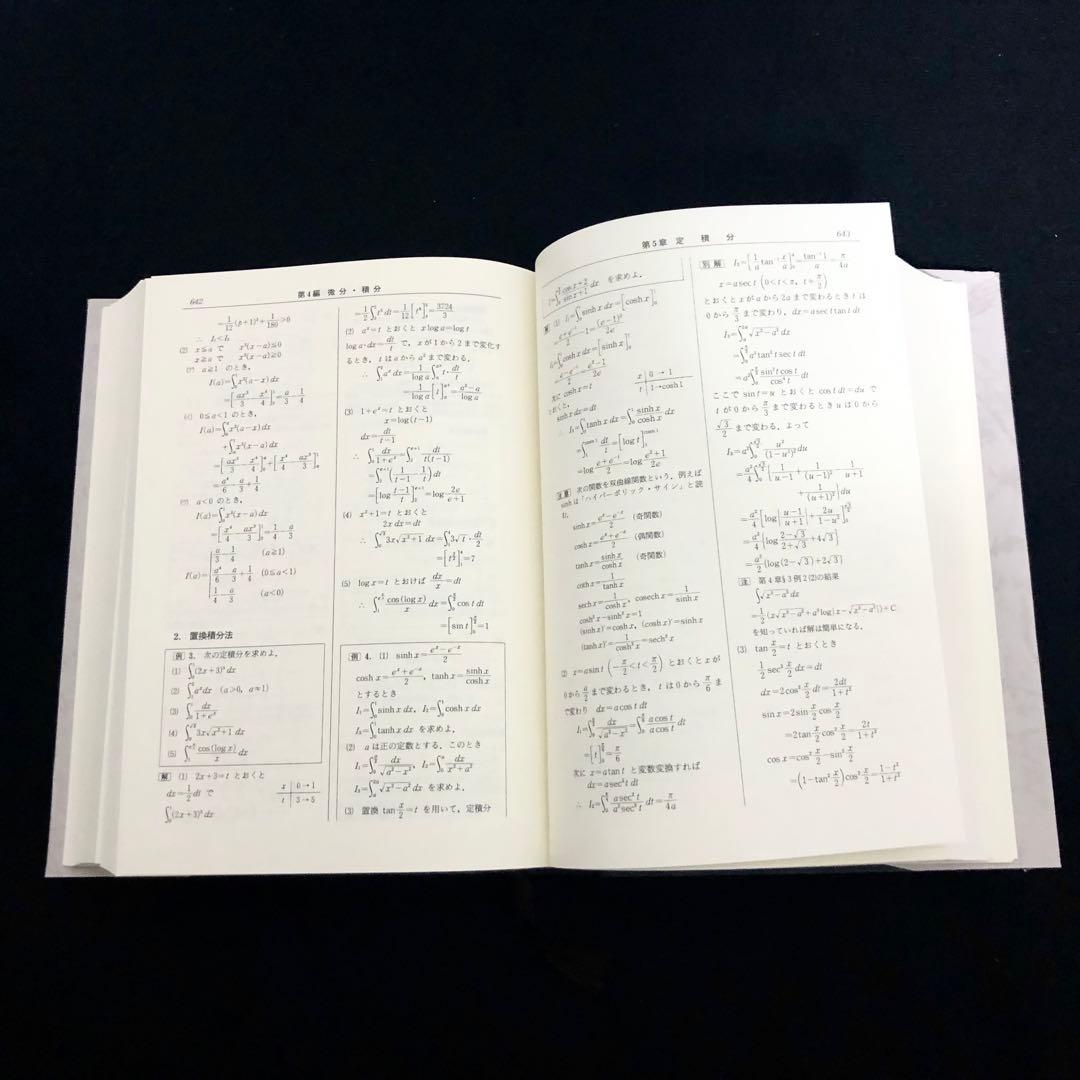 642
第4編 微分・積分
=1/12(p+1)⁴+1/180>0
∴ I₁<I₂
(2) x≦a で x²(x−a)≦0
x≧a で x²(x−a)≧0
(ア) a≧1 のとき,
I(a)=∫₀¹x²(a−x)dx
=[ax³/3−x⁴/4]₀¹=a/3−1/4
(イ) 0≦a<1 のとき,
I(a)=∫₀ᵃx²(a−x)dx
+∫ₐ¹x²(x−a)dx
=[ax³/3−x⁴/4]₀ᵃ+[x⁴/4−ax³/3]ₐ¹
=a⁴/6−a/3+1/4
(ウ) a<0 のとき,
I(a)=∫₀¹x²(x−a)dx
=[x⁴/4−ax³/3]₀¹=1/4−a/3
I(a)={a/3−1/4 (a≧1)
a⁴/6−a/3+1/4 (0≦a<1)
1/4−a/3 (a<0)
2. 置換積分法
例 3. 次の定積分を求めよ.
(1) ∫₀¹(2x+3)⁵dx
(2) ∫₁²aˣdx (a>0, a≠1)
(3) ∫₀¹dx/(1+eˣ)
(4) ∫₀^√3 3x√(x²+1) dx
(5) ∫₁^(e^(π/2)) cos(log x)/x dx
解 (1) 2x+3=t とおくと
dx=1/2 dt で
x 0→1
t 3→5
∫₀¹(2x+3)⁵dx
=1/2∫₃⁵t⁵dt=1/12[t⁶]₃⁵=3724/3
(2) aˣ=t とおくと x log a=log t
log a・dx=dt/t で, x が1から2まで変化するとき, t は a から a² まで変わる.
∴ ∫₁²aˣdx=1/log a ∫ₐ^(a²) t・dt/t
=1/log a [t]ₐ^(a²)=(a²−a)/log a
(3) 1+eˣ=t とおくと
x=log(t−1)
dx=dt/(t−1)
∫₀¹dx/(1+eˣ)=∫₂^(e+1) dt/(t(t−1))
=∫₂^(e+1)(1/(t−1)−1/t)dt
=[log (t−1)/t]₂^(e+1)=log 2e/(e+1)
(4) x²+1=t とおくと
2x dx=dt
∴ ∫₀^√3 3x√(x²+1) dx=∫₁⁴3√t・dt/2
=[t^(3/2)]₁⁴=7
(5) log x=t とおけば dx/x=dt
∴ ∫₁^(e^(π/2)) cos(log x)/x dx=∫₀^(π/2) cos t dt
=[sin t]₀^(π/2)=1
例 4. (1) sinh x=(eˣ−e⁻ˣ)/2
cosh x=(eˣ+e⁻ˣ)/2, tanh x=sinh x/cosh x
とするとき
I₁=∫₀¹sinh x dx, I₂=∫₀¹cosh x dx
I₃=∫₀¹tanh x dx を求めよ.
(2) a は正の定数とする. このとき
I₁=∫₀^(a/2) dx/√(a²−x²), I₂=∫₀ᵃ dx/(x²+a²)
I₃=∫ₐ^(2a)√(x²−a²) dx を求めよ.
(3) 置換 tan x/2=t を用いて, 定積分
第5章 定 積 分
643
(cos x+2)/(sin x+1) dx を求めよ.
(1) I₁=∫₀¹sinh x dx=[cosh x]₀¹
=(e+e⁻¹)/2−1=(e−1)²/2e
I₂=∫₀¹cosh x dx=[sinh x]₀¹
=(e−e⁻¹)/2=(e²−1)/2e
次に cosh x=t
とおくと,
x 0→1
t 1→cosh 1
sinh x dx=dt
∴ I₃=∫₀¹tanh x dx=∫₀¹ sinh x/cosh x dx
=∫₁^(cosh 1) dt/t=[log t]₁^(cosh 1)
=log (e+e⁻¹)/2=log (e²+1)/2e
注意 次の関数を双曲線関数という. 例えば
sinh は「ハイパーボリック・サイン」と読
む.
sinh x=(eˣ−e⁻ˣ)/2 (奇関数)
cosh x=(eˣ+e⁻ˣ)/2 (偶関数)
tanh x=sinh x/cosh x (奇関数)
coth x=1/tanh x
sech x=1/cosh x, cosech x=1/sinh x
cosh²x−sinh²x=1
(sinh x)′=cosh x, (cosh x)′=sinh x
(tanh x)′=1/cosh²x=sech²x
(2) x=a sin t (−π/2<t<π/2) とおくと x が
0から a/2 まで変わるとき, t は0から π/6 ま
で変わり dx=a cos t dt
I₁=∫₀^(a/2) dx/√(a²−x²)=∫₀^(π/6) a cos t/a cos t dt
=[t]₀^(π/6)=π/6
次に x=a tan t と変数変換すれば
dx=a sec²t dt
∴ I₂=∫₀^(π/4) a sec²t/a²sec²t dt=π/4a
別解 I₂=[1/a tan⁻¹ x/a]₀ᵃ=tan⁻¹1/a=π/4a
x=a sec t (0<t<π, t≠π/2)
とおくと x が a から 2a まで変わるとき t は
0 から π/3 まで変わり, dx=a sec t tan t dt
I₃=∫ₐ^(2a)√(x²−a²)dx
=∫₀^(π/3)a²tan²t sec t dt
=a²∫₀^(π/3) sin²t cos t/cos⁴t dt
ここで sin t=u とおくと cos t dt=du で
t が 0 から π/3 まで変わるとき u は 0 から
√3/2 まで変わる. よって
I₃=a²∫₀^(√3/2) u²/(1−u²)² du
+1/(u+1)²}du
=a²/4[log|(u−1)/(u+1)|+2u/(1−u²)]₀^(√3/2)
=a²/4{log (2−√3)/(2+√3)+4√3}
=a²/2{log(2−√3)+2√3}
注 第4章§3例2(2)の結果
∫√(x²−a²)dx
=1/2(x√(x²−a²)+a²log|x−√(x²−a²)|)+C
を知っていれば解は簡単になる.
(3) tan x/2=t とおくとき
1/2 sec² x/2 dx=dt
dx=2cos² x/2 dt=2dt/(1+t²)
sin x=2sin x/2 cos x/2
=2tan x/2 cos² x/2=2t/(1+t²)
cos x=cos² x/2−sin² x/2
=(1−tan² x/2)cos² x/2=(1−t²)/(1+t²)